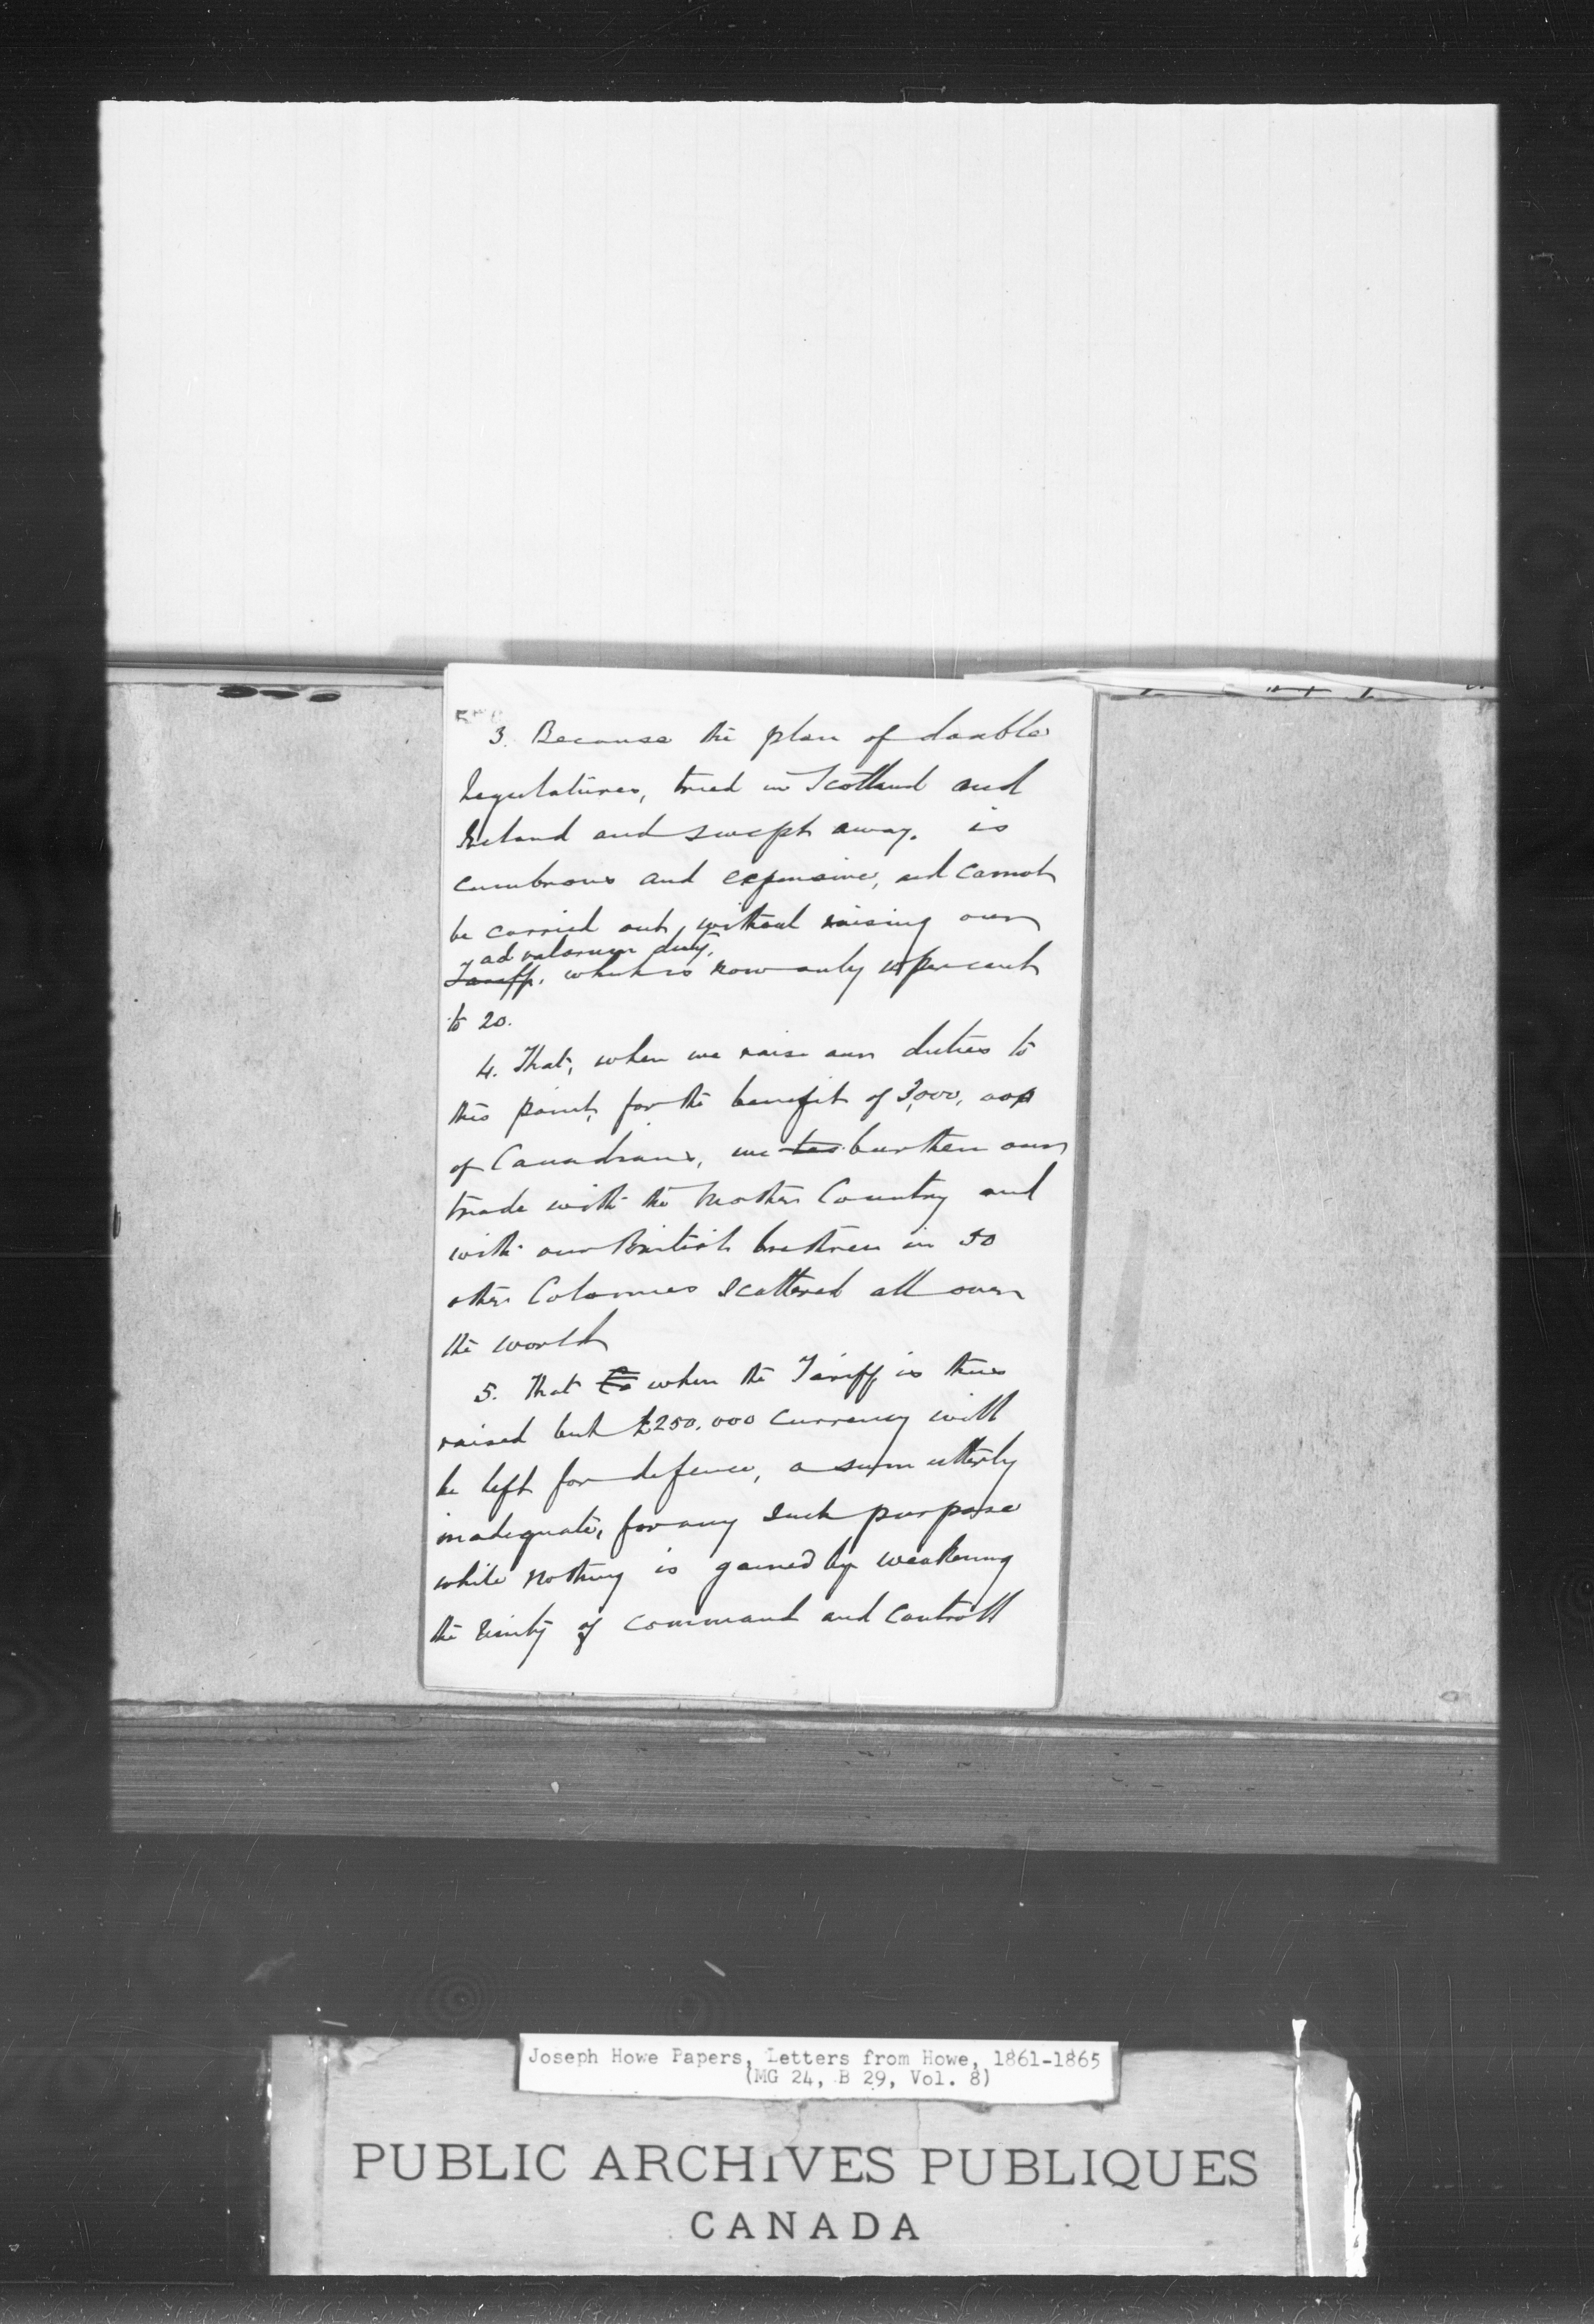 3. Because the plan of double
Legislatures, tried in Scotland and
Ireland and swept away, is
cumbrous and expensive, and cannot
be carried out, without raising our
ad valorum duty,
Tariff, which is now only 10 per cent
to 20.
4. That, when we raise our duties to
this point, for the benefit of 3,000,000
of Canadians, we burthen our
trade with the Mother Country and
with our British brethren in 50
other Colonies scattered all over
the world
5. That when the Tariff is thus
raised but £250,000 currency will
be left for defence, a sum utterly
inadequate, for any such purpose
while nothing is gained by weakening
the Unity of command and controll
Joseph Howe Papers, Letters from Howe, 1861-1865
(MG 24, B 29, Vol. 8)
PUBLIC ARCHIVES PUBLIQUES
CANADA